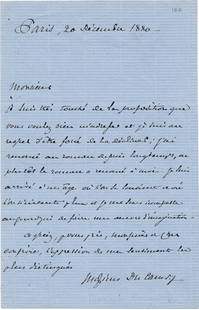 Paris, 20 Décembre 1880
Monsieur
Je suis très touché de la proposition que
vous voulez bien m'adresser et je suis au
regret d'être forcé de la décliner ; j'ai
renoncé au roman depuis longtemps, ou
plutôt le roman a renoncé à moi. Je suis
arrivé à un âge où
plus et je me sens incapable
aujourd'hui de faire une œuvre d'imagination.
Agréez, je vous prie, Monsieur & cher
confrère, l'expression de mes sentiments les
plus distingués
Maxime Du Camp